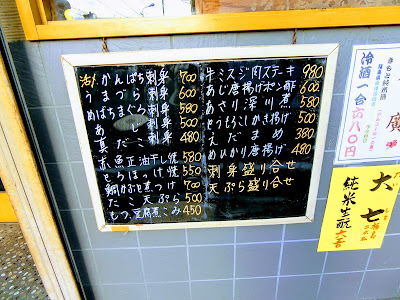 活〆かんぱち刺身 700
うまづら刺身 600
めばちまぐろ刺身 580
あじ刺身 500
真だこ刺身 480
赤魚正油干し焼 580
とろほっけ焼 550
鯛かぶと煮つけ 700
たこ天ぷら 500
もつ豆腐煮こみ 450
牛ミスジ肉ステーキ 980
あじ唐揚げポン酢 600
あさり深川煮 580
とうもろこしかき揚げ 500
えだまめ 380
めひかり唐揚げ 480
刺身盛り合せ
天ぷら盛り合せ
冷酒一合六八〇円
大七
純米生酛
福島